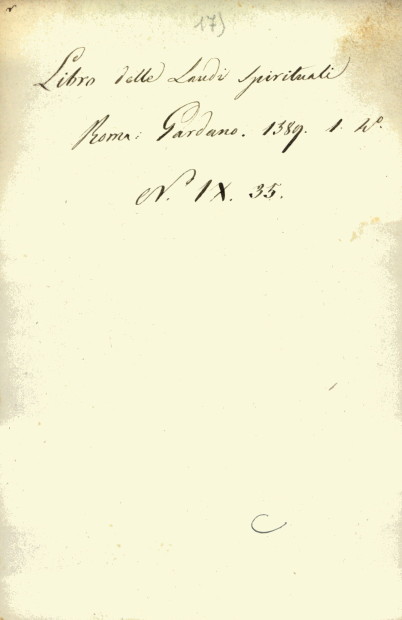 17)
Libro delle Laudi spirituali
Roma: Gardano. 1589. 1. 4º.
N. IX. 35.